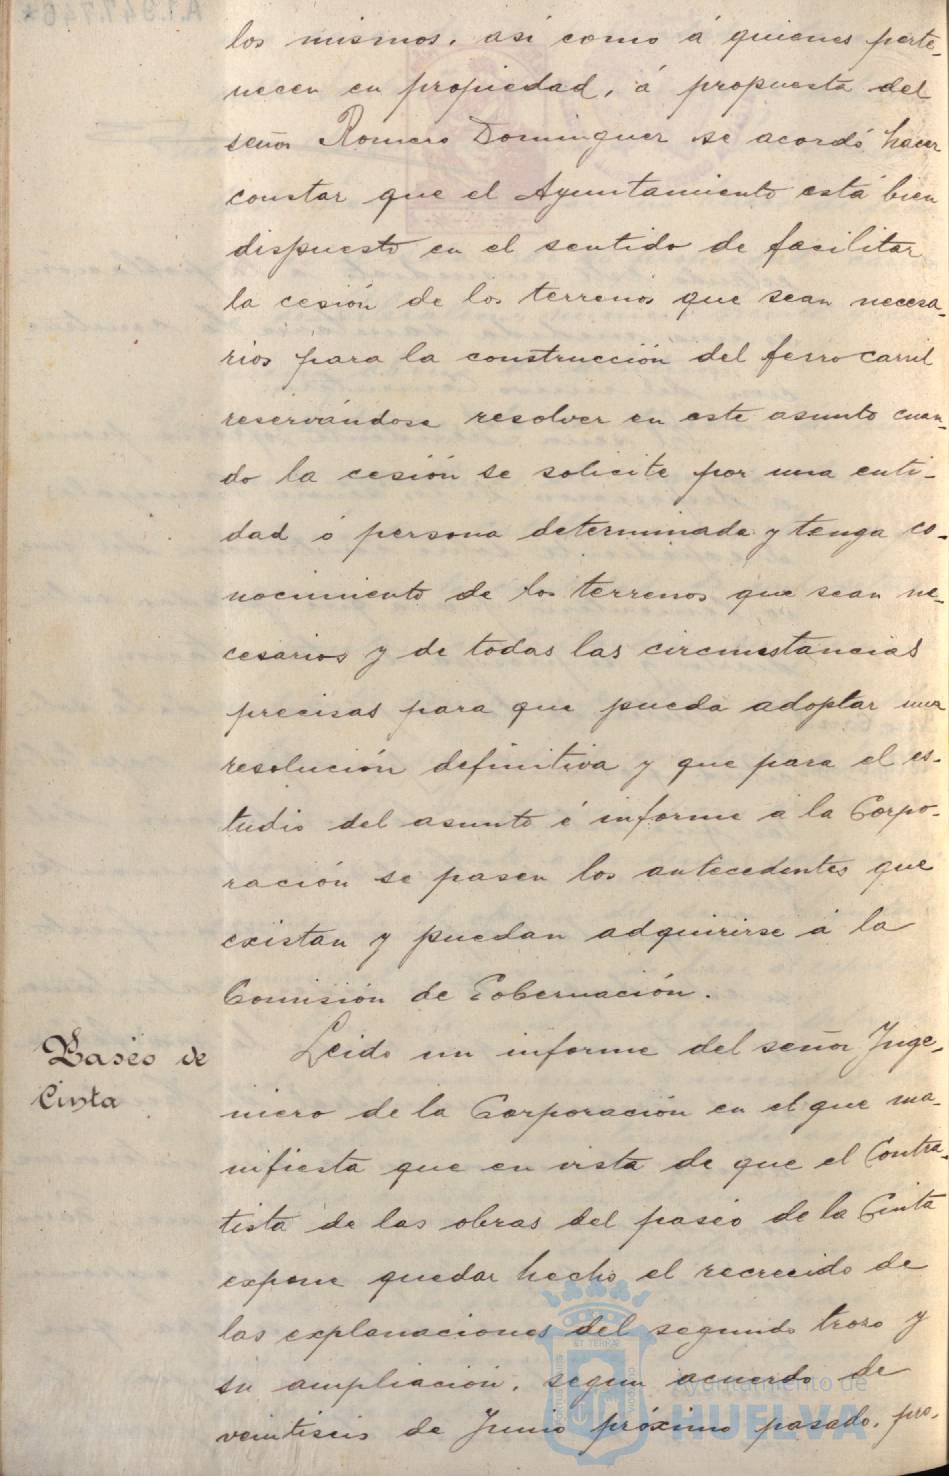 A.1.947.746*
los mismos, así como á quienes perte-
necen en propiedad, á propuesta del
señor Romero Dominguez se acordó hacer
constar que el Ayuntamiento está bien
dispuesto en el sentido de facilitar
la cesión de los terrenos que sean necesa-
rios para la construcción del ferro carril
reservándose resolver en este asunto cuan-
do la cesión se solicite por una enti-
dad ó persona determinada y tenga co-
nocimiento de los terrenos que sean ne-
cesarios y de todas las circunstancias
precisas para que pueda adoptar una
resolución definitiva y que para el es-
tudio del asunto é informe á la Corpo-
ración se pasen los antecedentes que
existan y puedan adquirirse á la
Comisión de Gobernación.
Paseo de
Cinta
Leido un informe del señor Inge-
niero de la Corporación en el que ma-
nifiesta que en vista de que el Contra-
tista de las obras del paseo de la Cinta
expone quedar hecho el recrecido de
las explanaciones del segundo trozo y
su ampliación, segun acuerdo de
veintiseis de Junio próximo pasado, pro-
Ayuntamiento de
HUELVA